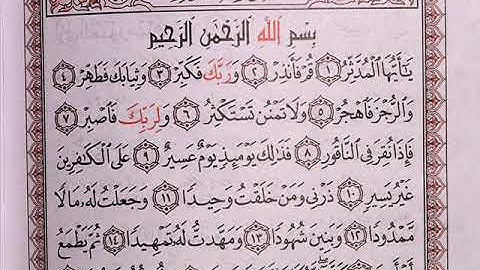 بِسْمِ اللَّهِ الرَّحْمَنِ الرَّحِيمِ
يَا أَيُّهَا الْمُدَّثِّرُ ١ قُمْ فَأَنْذِرْ ٢ وَرَبَّكَ فَكَبِّرْ ٣ وَثِيَابَكَ فَطَهِّرْ ٤
وَالرُّجْزَ فَاهْجُرْ ٥ وَلَا تَمْنُنْ تَسْتَكْثِرُ ٦ وَلِرَبِّكَ فَاصْبِرْ ٧
فَإِذَا نُقِرَ فِي النَّاقُورِ ٨ فَذَلِكَ يَوْمَئِذٍ يَوْمٌ عَسِيرٌ ٩ عَلَى الْكَافِرِينَ
غَيْرُ يَسِيرٍ ١٠ ذَرْنِي وَمَنْ خَلَقْتُ وَحِيدًا ١١ وَجَعَلْتُ لَهُ مَالًا
مَمْدُودًا ١٢ وَبَنِينَ شُهُودًا ١٣ وَمَهَّدْتُ لَهُ تَمْهِيدًا ١٤ ثُمَّ يَطْمَعُ